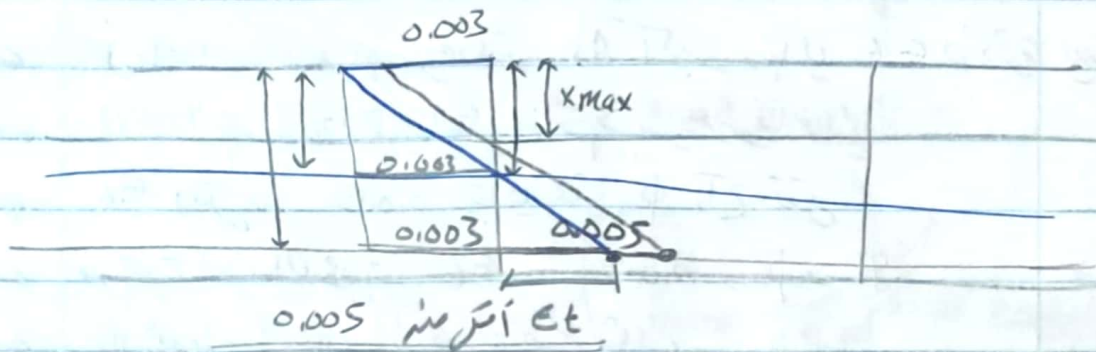 0.003
xmax
0.003
0.003 0.005
0.005 εt